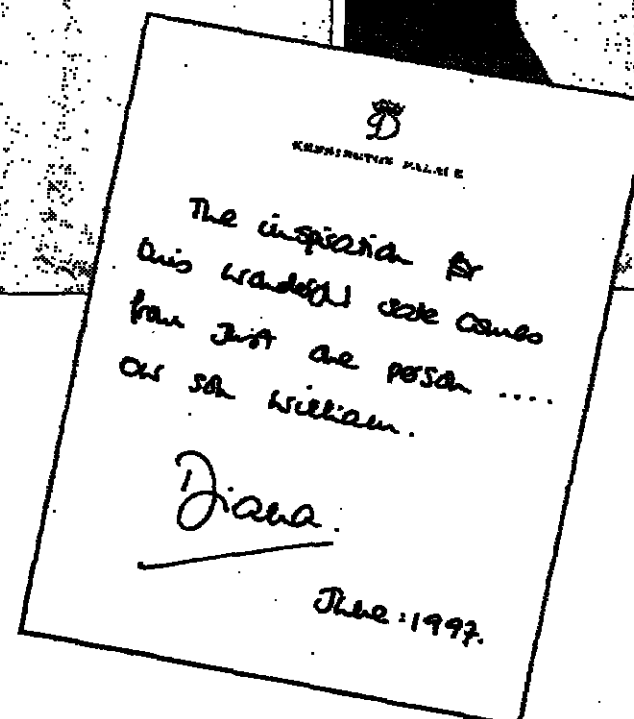 D
KENSINGTON PALACE
The inspiration for
this wonderful sale comes
from Just one person ....
our son William.
Diana.
June: 1997.